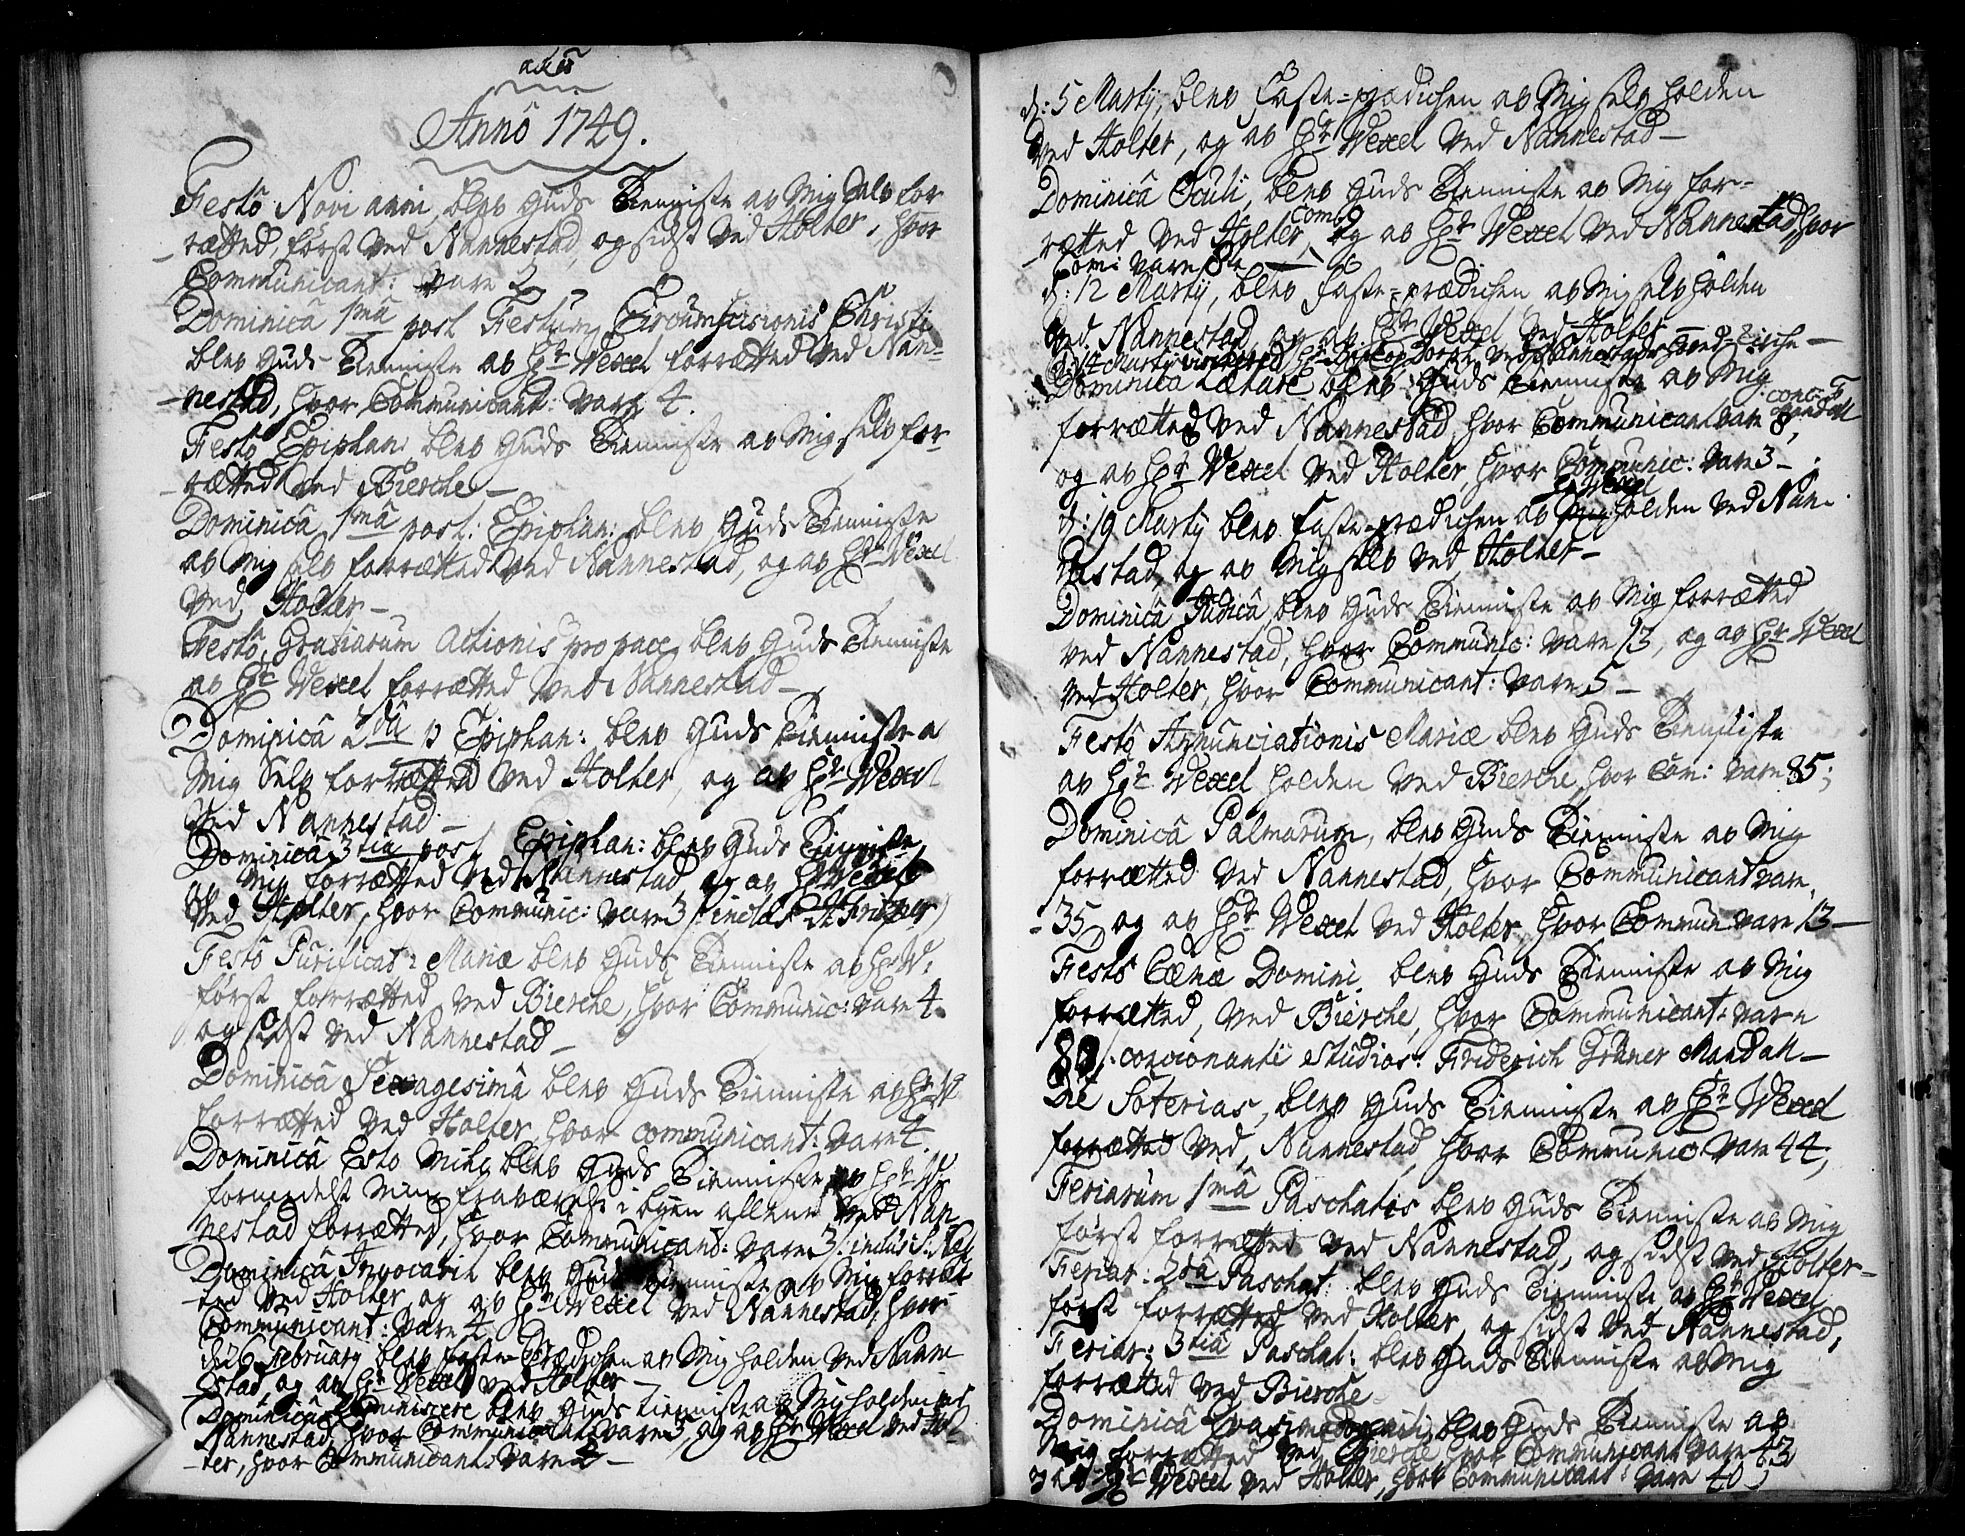 Annô 1749.
Festô Novi anni, blev Guds Tienniste av Mig Selv for
rætted, först ved Nannestad, og sidst ved Holter, hvor
Communicant: vare 2
Dominicâ 1mâ post Festum Circumscisionis Christi
blev Guds Tienniste av Hr Wexel forrætted ved Nan-
nestad, hvor Communicant: vare 4.
Festô Epiphan: blev Guds Tienniste av Mig selv for-
rætted ved Bierche
Dominicâ 1mâ post: Epiphan: blev Guds Tienniste
av Mig selv forrætted ved Nannestad, og av Hr Wexel
ved Holter
Festô Gratiarum Actionis pro pace, blev Guds Tienniste
av Hr Wexel forrætted ved Nannestad
Dominicâ 2dâ p Epiphan: blev Guds Tienniste a
Mig Selv forrætted ved Holter, og av Hr Wexel
ved Nannestad
Dominicâ 3tiâ post Epiphan: blev Guds Tienniste
av Mig forrætted ved Nannestad, og av Hr Wexel
ved Holter, hvor Communic: vare 3
Festô Purificat: Mariæ blev Guds Tienniste av Hr W:
först forrætted ved Bierche, hvor Communic: vare 4
og sidst ved Nannestad
Dominicâ Sexagesimâ blev Guds Tienniste av Hr W
forrætted ved Holter, hvor communicant: vare 4
Dominicâ Esto Mihi blev Guds Tienniste av Hr W
formedelst Min fraværelse i byen allene ved Nan-
nestad forrætted, hvor Communicant: vare 3
Dominicâ Invocavit blev Guds Tienniste av Mig forræt
ted ved Holter, og av Hr Wexel ved Nannestad, hvor
Communicant: vare 4
d: 26 February blev faste-Prædichen av Mig holden ved Nanne
stad, og av Hr Wexel ved Holter
Dominicâ Reminiscere blev Guds Tienniste av Mig holden ved
Nannestad, hvor Communicant: vare 3, og av Hr Wexel ved Hol-
ter, hvor Communicant: vare
d: 5 Martij, blev Faste-prædichen av Mig selv holden
ved Holter, og av Hr Wexel ved Nannestad
Dominicâ Oculi, blev Guds Tienniste av Mig for-
rætted ved Holter, og av Hr Wexel ved Nannestad, hvor
Com: vare
d: 12 Martij, blev faste-prædichen av Mig selv holden
ved Nannestad, og av Hr Wexel ved Holter
d: 14 Martij visiterede Hr Biscop ved Nannestads Hoved-Kirche
Dominicâ Lætare blev Guds Tienniste av Mig
forrætted ved Nannestad, hvor Communicant vare 8,
og av Hr Wexel ved Holter, hvor Communic: vare 3
Hr Wexel
d: 19 Martij blev faste-prædichen av Mig holden ved Nan-
nestad, og av Mig selv ved Holter
Dominicâ Judicâ, blev Guds Tienniste av Mig forrætted
ved Nannestad, hvor Communic: vare 13, og av Hr Wexel
ved Holter, hvor Communicant: vare 5
Festô Annunciationis Mariæ blev Guds Tienniste
av Hr Wexel holden ved Bierche, hvor Com: vare 85;
Dominicâ Palmarum, blev Guds Tienniste av Mig
forrætted ved Nannestad, hvor Communicant vare
35, og av Hr Wexel ved Holter, hvor Commun vare 13
Festô Cœnæ Domini, blev Guds Tienniste av Mig
forrætted, ved Bierche, hvor Communicant: vare
concionante Studios: Friderich Grüner Mandall
Die Soterias, blev Guds Tienniste av Hr Wexel
forrætted ved Nannestad, hvor Communic vare 44;
Feriarum 1mâ Paschatos blev Guds Tienniste av Mig
först forrætted ved Nannestad, og sidst ved Holter
Feriar: 2dâ Paschat: blev Guds Tienniste av Hr Wexel
först forrætted ved Holter, og sidst ved Nannestad,
Feriar: 3tiâ Paschat: blev Guds Tienniste av Mig
forrætted ved Bierche
Dominicâ Qvasimodogeniti, blev Guds Tienniste av
Mig forrætted ved Bierche hvor Communicant vare 43
og av Hr Wexel ved Holter, hvor Communicant: vare 40